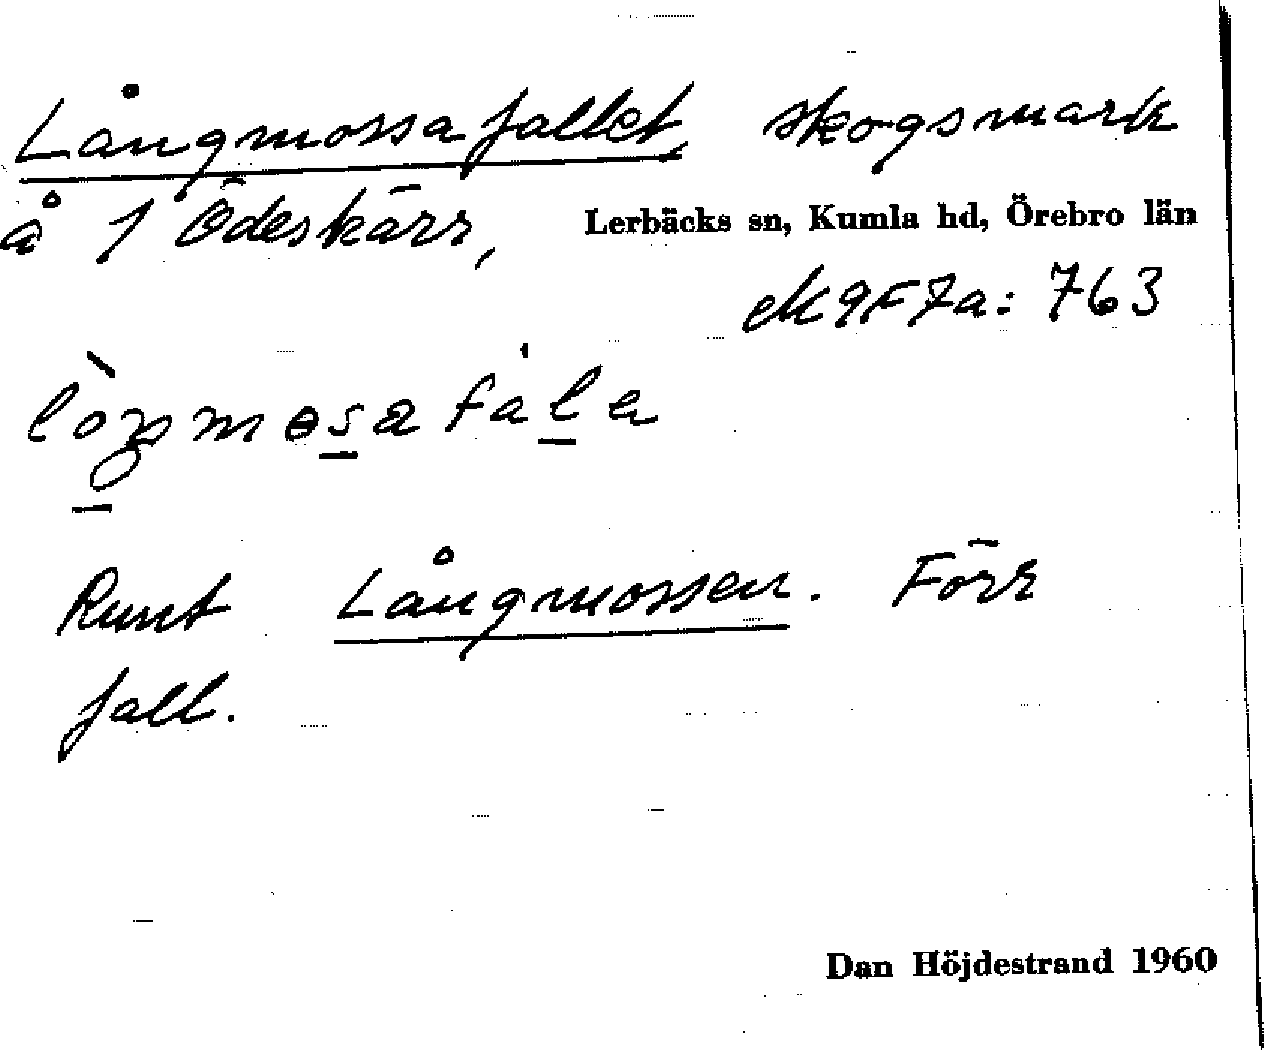 Långmossafallet, skogsmark
å 1 Ödeskärr, Lerbäcks sn, Kumla hd, Örebro län
ek 9F7a: 763
lòŋmosa fàla
Runt Långmossen. Förr
fall.
Dan Höjdestrand 1960